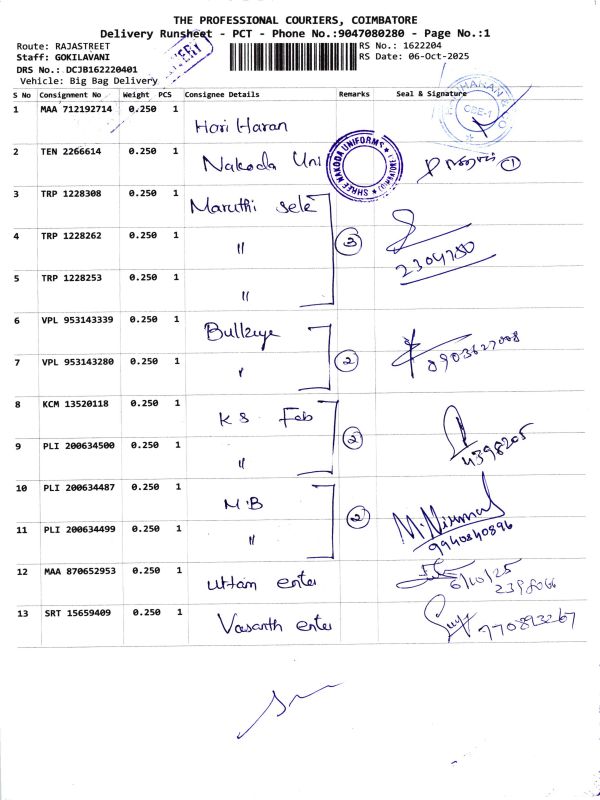 THE PROFESSIONAL COURIERS, COIMBATORE
Delivery Runsheet - PCT - Phone No.:9047080280 - Page No.:1
Route: RAJASTREET
RS No.: 1622204
Staff: GOKILAVANI
RS Date: 06-Oct-2025
DRS No.: DCJB162220401
Vehicle: Big Bag Delivery
S No Consignment No Weight PCS Consignee Details Remarks Seal & Signature
1 MAA 712192714 0.250 1 Hari Haran
2 TEN 2266614 0.250 1 Nakoda Uni SHREE NAKODA UNIFORMS 1
3 TRP 1228308 0.250 1 Maruthi Sele
4 TRP 1228262 0.250 1 " 3 2304750
5 TRP 1228253 0.250 1 "
6 VPL 953143339 0.250 1 Bullzeye
7 VPL 953143280 0.250 1 " 2 8903627008
8 KCM 13520118 0.250 1 K S Fab
9 PLI 200634500 0.250 1 " 2 4398205
10 PLI 200634487 0.250 1 M.B
11 PLI 200634499 0.250 1 " 2 M. Nirmal 9940840896
12 MAA 870652953 0.250 1 Uttam enter 6/10/25 2398066
13 SRT 15659409 0.250 1 Vasanth enter 770893267